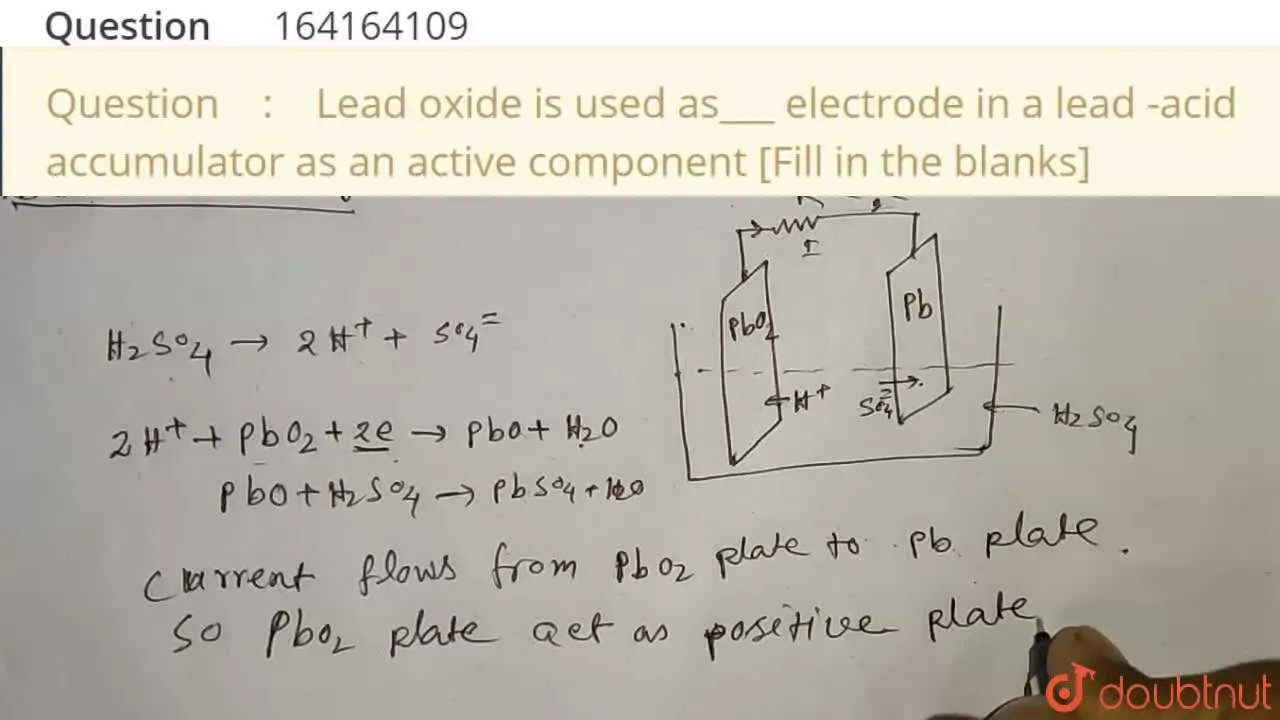 Question 164164109
Question : Lead oxide is used as___ electrode in a lead -acid
accumulator as an active component [Fill in the blanks]
I
PbO2
Pb
H2SO4 → 2H+ + SO4=
H+
SO4=
H2SO4
2H+ + PbO2 + 2e → PbO + H2O
PbO + H2SO4 → PbSO4 + H2O
Current flows from PbO2 plate to Pb plate.
So PbO2 plate act as positive plate
doubtnut